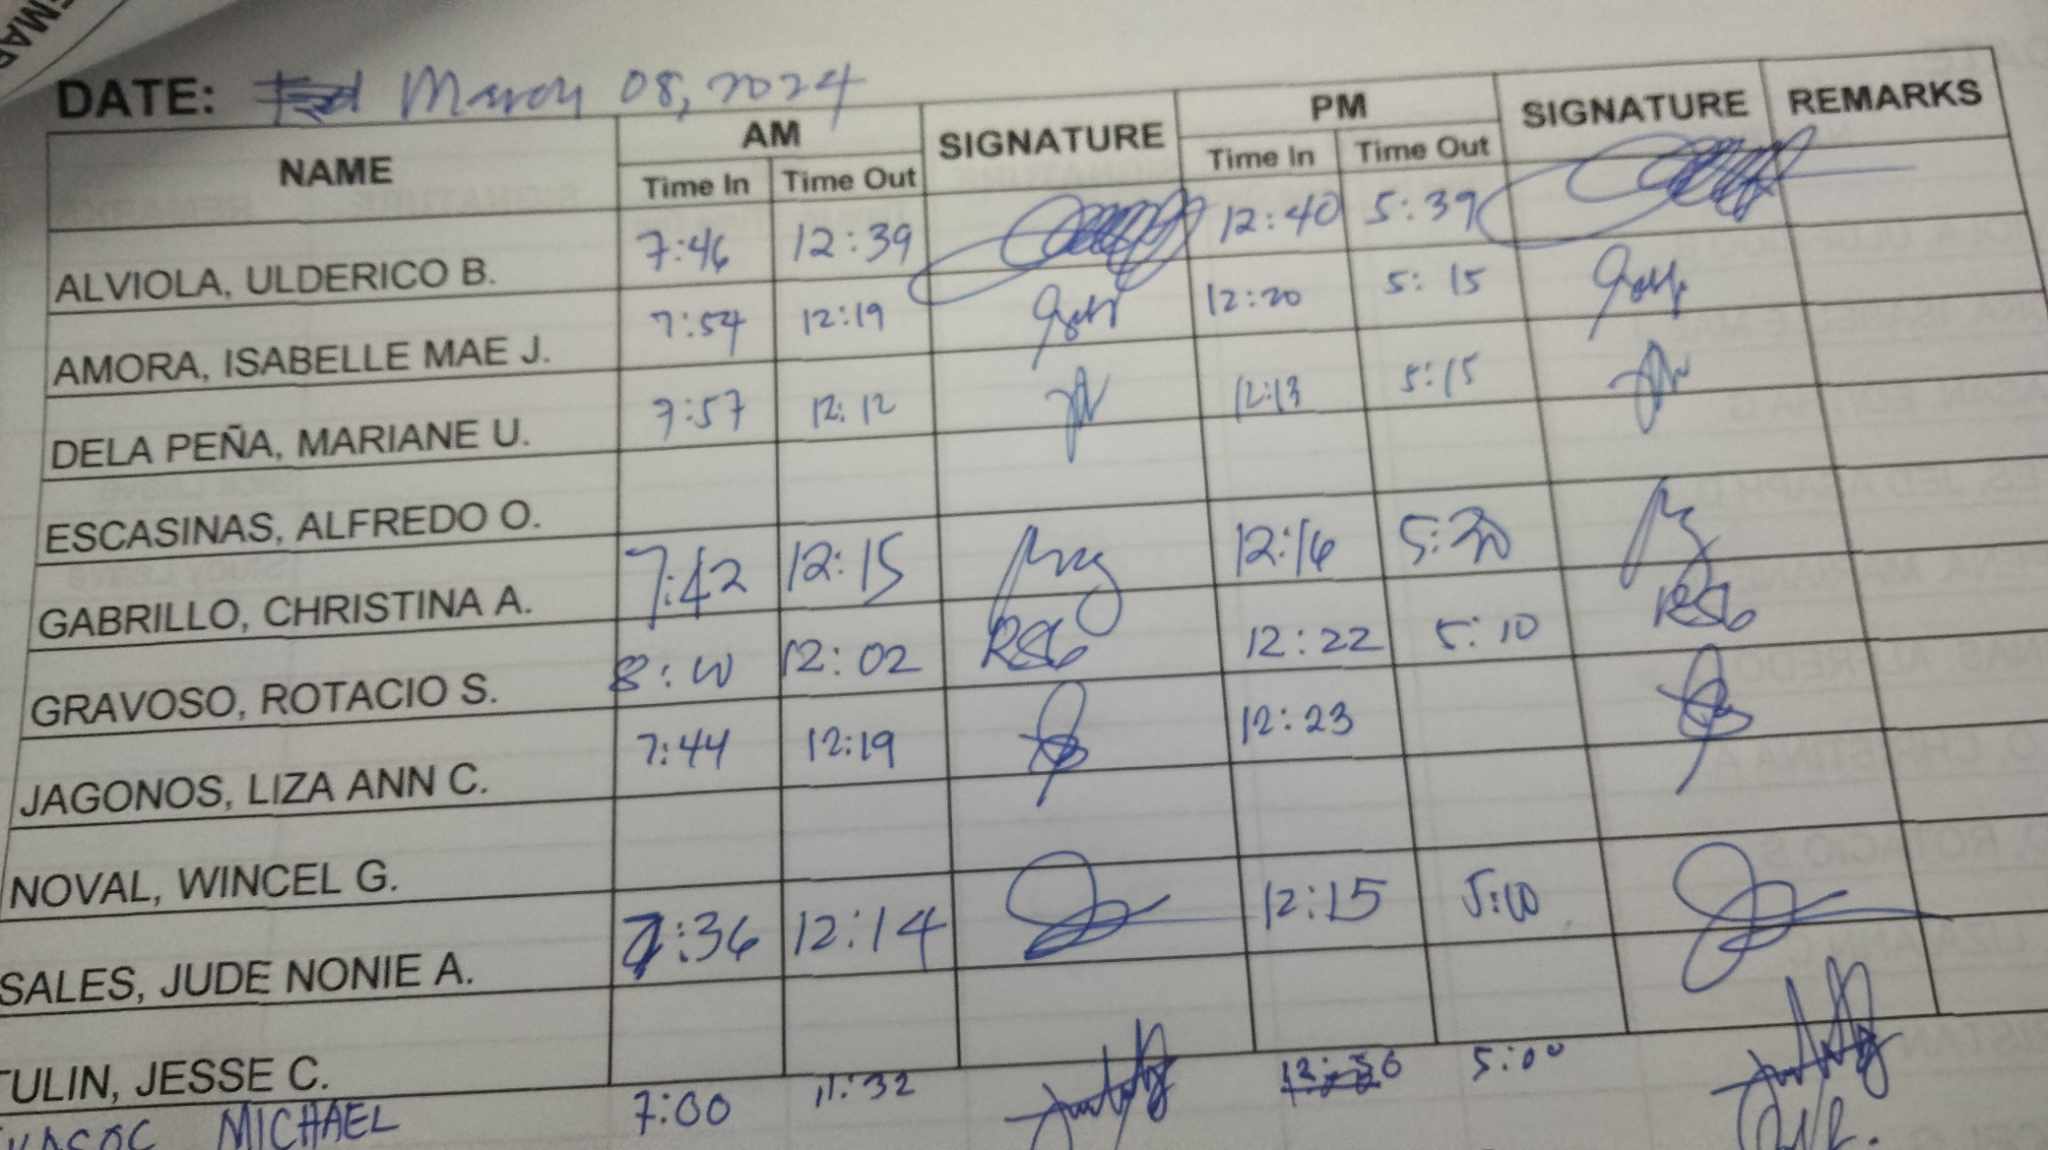 DATE: March 08, 2024
NAME AM SIGNATURE PM SIGNATURE REMARKS
Time In Time Out Time In Time Out
ALVIOLA, ULDERICO B. 7:46 12:39 12:40 5:39
AMORA, ISABELLE MAE J. 7:54 12:19 12:20 5:15
DELA PEÑA, MARIANE U. 7:57 12:12 12:13 5:15
ESCASINAS, ALFREDO O.
GABRILLO, CHRISTINA A. 7:42 12:15 12:16 5:30
GRAVOSO, ROTACIO S. 8:00 12:02 RSG 12:22 5:10 RSG
JAGONOS, LIZA ANN C. 7:44 12:19 12:23
NOVAL, WINCEL G.
SALES, JUDE NONIE A. 7:36 12:14 12:15 5:00
TULIN, JESSE C.
MICHAEL 7:00 11:32 5:00